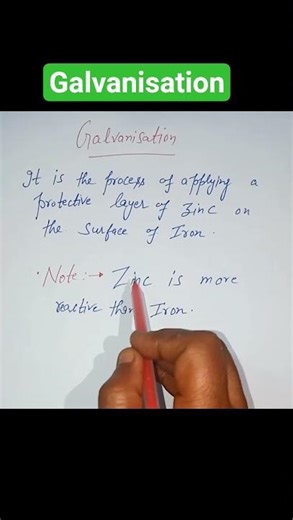 Galvanisation
Galvanisation
It is the process of applying a
protective layer of zinc on
the surface of Iron.
Note:→ Zinc is more
reactive than Iron.